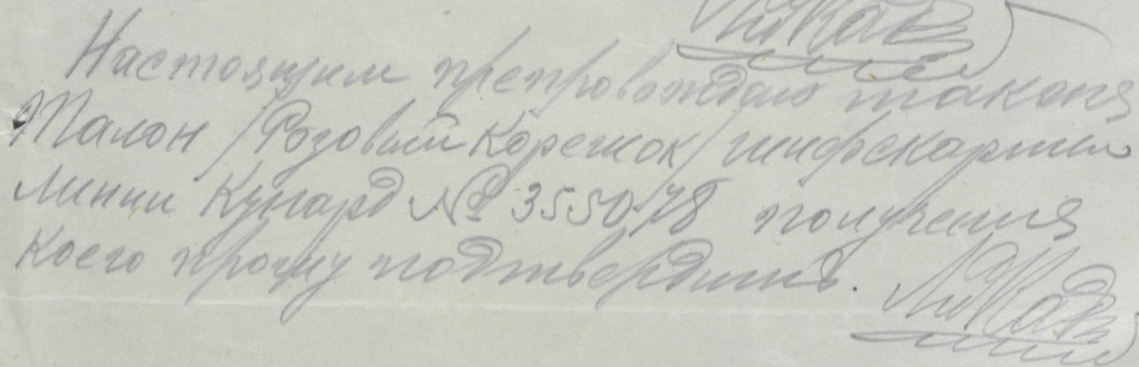 Настоящим препровождаю таконя
Талон / Розовый Корешок / шифскарты
Линии Кунард № 3550478 получения
коего прошу подтвердить.